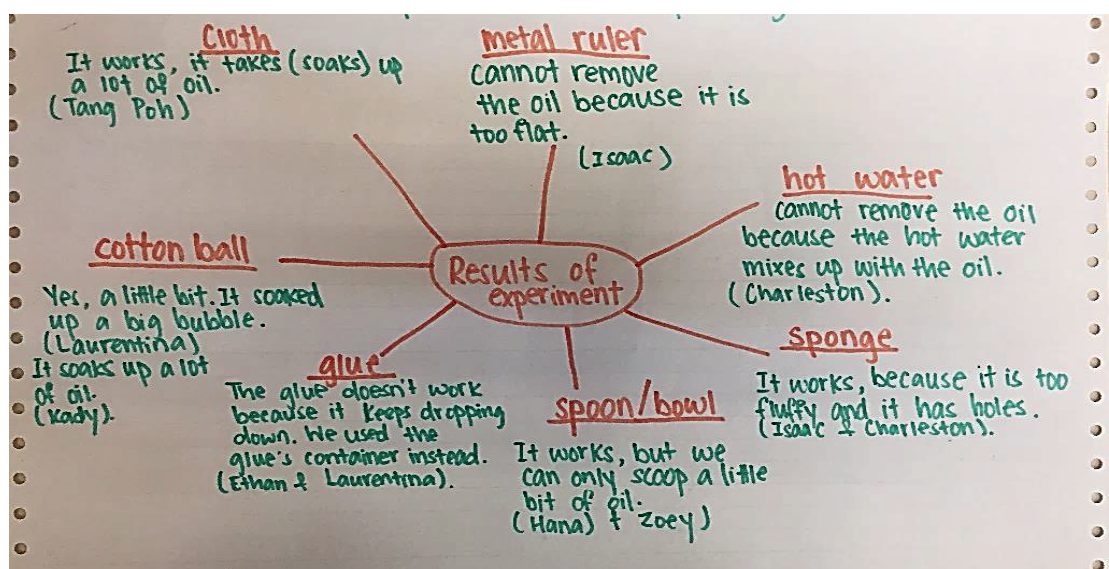 Cloth
It works, it takes (soaks) up
a lot of oil.
(Tang Poh)
metal ruler
cannot remove
the oil because it is
too flat.
(Isaac)
hot water
cannot remove the oil
because the hot water
mixes up with the oil.
(Charleston).
cotton ball
Yes, a little bit. It soaked
up a big bubble.
(Laurentina)
It soaks up a lot
of oil.
(Kady).
Results of
experiment
glue
The glue doesn't work
because it keeps dropping
down. We used the
glue's container instead.
(Ethan & Laurentina).
spoon/bowl
It works, but we
can only scoop a little
bit of oil.
(Hana) & Zoey)
sponge
It works, because it is too
fluffy and it has holes.
(Isaac & Charleston).